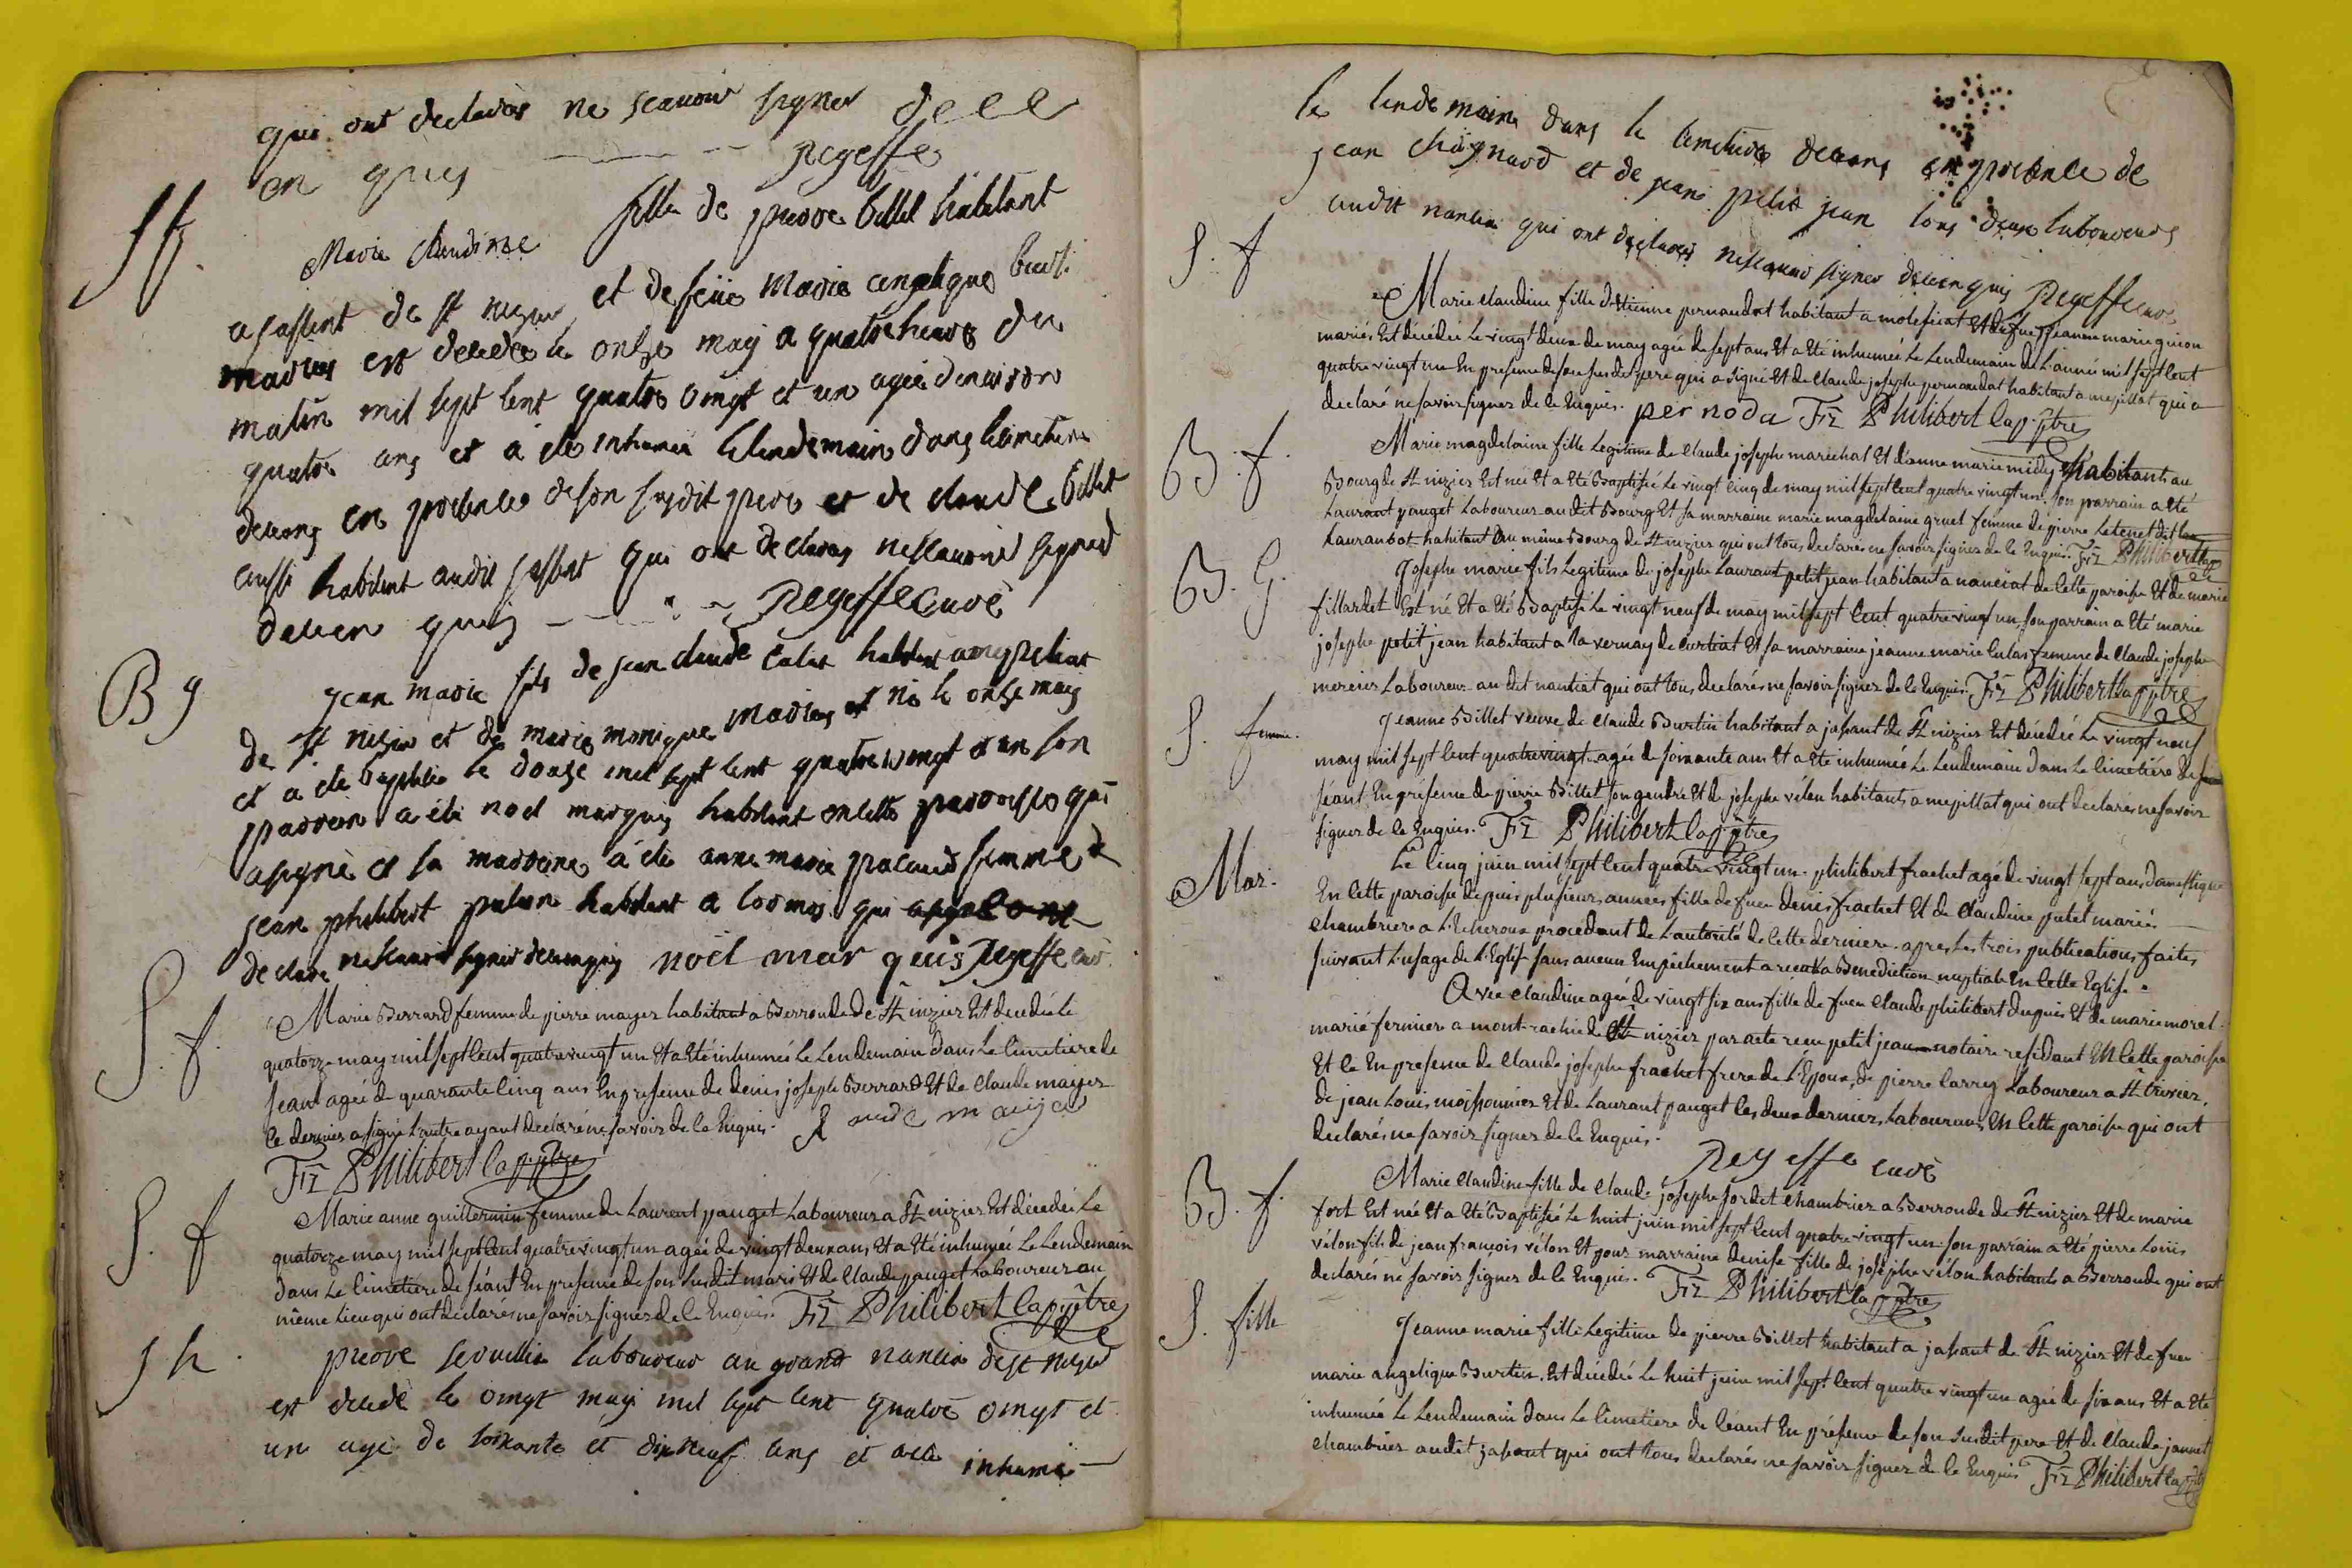 qui ont declarés ne scauoir signer de ce
en quis Reyeffe
Sf.
Marie Claudine fille de pierre billet habitant
a jassent de st nizier et de feüe Marie angelique burti
mariés est decedée le onze may a quatre heures du
matin mil sept cent quatre vingt et un agée denviron
quatre ans et a ete inhumée le lendemain dans le cimetiere
deceans en presence de son susdit pere et de claude billet
aussi habitant audit jassent qui ont declarés ne scauoir signer
de ce en quis Reyeffe curé
B g
jean marie fils de jean claude calas habitant a mepiliat
de st nizier et de marie monique mariés est né le onze may
et a ete baptisé le douze mil sept cent quatre vingt et un son
parrein a été noel marquis habitant en cette parroisse qui
a signé et sa marreine a été anne marie pacaud femme de
jean philibert habitant a cormos qui
declaré ne scauoir signer de ce enquis noël mar quis Reyeffe curé
S. f.
Marie Berrard femme de pierre mayer habitant a Berronde de St nizier Est decedée Le
quatorze may mil sept cent quatre vingt un Et a Eté inhumée Le Lendemain dans Le cimetiere de
séant agée de quarante cinq ans En presence de denis joseph Berrard Et de Claude mayer
ce dernier a signé L'autre ayant declaré ne savoir de ce Enquis.
Frz Philibert la p. ptre
S. f
Marie anne guillermin femme de Laurent pauget Laboureur a St nizier Est décedée Le
quatorze may mil sept cent quatre vingt un agée de vingt deux ans, Et a Eté inhumée Le Lendemain
dans Le cimetiere de séant En presence de son susdit mari Et de Claude pauget Laboureur au
même Lieu qui ont declarés ne savoir signer de ce Enquis. Frz Philibert la p ptre
S h.
pierre laboureur au grand nancia de st nizier
est decedé le vingt may mil sept cent quatre vingt et
un agé de soixante et dix neuf ans et a ete inhumé
le lendemain dans le cimetiere deceans en presence de
jean chagnard et de jean petit jean tous deux laboureurs
audit nancia qui ont declarés ne scauoir signer de ce en quis Reyeffe curé
S. f
Marie Claudine fille d'Etienne pernaudat habitant a molefiat Et de fue jeanne marie guion
mariés Est décedée Le vingt deux de may agée de sept ans Et a Eté inhumée Le Lendemain de L'année mil sept cent
quatre vingt un En presence de son susdit pere qui a signé Et de Claude josephe pernaudat habitant a mepillat qui a
declaré ne savoir signer de ce Enquis. per noda Frz Philibert la p. ptre
B. f.
Marie magdelaine fille Legitime de Claude josephe marechal Et d'anne marie midy habitants au
Bourg de St nizier Est née Et a Eté Baptisée Le vingt cinq de may mil sept cent quatre vingt un. son parrain a Eté
Laurant pauget Laboureur audit Bourg Et sa marraine marie magdelaine gruet femme de pierre
habitant Au même Bourg de St nizier qui ont tous declarés ne savoir signer de ce Enquis. Frz Philibert
B. G.
Josephe marie fils Legitime de josephe Laurant petit jean habitant a nanciat de cette paroisse Et de marie
fillardet Est né Et a Eté Baptisé Le vingt neuf de may mil sept cent quatre vingt un, son parrain a Eté marie
josephe petit jean habitant a la vernay de curtiat Et sa marraine jeanne marie femme de Claude josephe
mercier Laboureur audit nantiat qui ont tous declarés ne savoir signer de ce Enquis. Frz Philibert la p ptre
S. femme.
Jeanne Billet veuve de Claude Burtin habitant a jassant de St nizier Est décedée Le vingt neuf
may mil sept cent quatre vingt agée de soixante ans Et a Eté inhumée Le Lendemain dans Le cimetiére de
séant En présence de pierre Billet son gendre Et de josephe vélon habitants a mepillat qui ont declarés ne savoir
signer de ce Enquis. Frz Philibert la p ptre
Mar.
Le cinq juin mil sept cent quatre vingt un. philibert frachet agé de vingt sept ans domestique
En cette paroisse depuis plusieurs années fils de feu denis frachet Et de Claudine putet mariés
chambriere a L'echeroux procedant de L'autorité de cette derniere. apres Les trois publications faites
suivant L'usage de L'Eglise sans aucun Empêchement a recu La Benediction nuptiale En cette Eglise.
Avec Claudine agée de vingt six ans fille de feu Claude philibert dupuis Et de marie morel
marié fermier a mont-rachie de St nizier par acte recu petit jean notaire residant En cette paroisse
Et ce En presence de Claude josephe frachet frere de L'Epoux, de pierre larrey Laboureur a St trivier,
de jean Louis moissonnier Et de Laurant pauget les deux derniers Laboureurs En cette paroisse qui ont
declarés ne savoir signer de ce Enquis.
Reyeffe curé
B. f.
Marie Claudine fille de Claude josephe fordet chambrier a Berronde de St nizier Et de marie
fort Est née Et a Eté Baptisée Le huit juin mil sept cent quatre vingt un son parrain a Eté pierre Loüis
vélon fils de jean françois vélon Et pour marraine denise fille de josephe vélon habitants a Berronde qui ont
declarés ne savoir signer de ce Enquis. Frz Philibert la p ptre
S. fille
Jeanne marie fille Legitime de pierre Billet habitant a jassant de St nizier Et de feue
marie angelique Burtin. Est décedée Le huit juin mil sept cent quatre vingt un agée de six ans Et a Eté
inhumée Le Lendemain dans Le cimetiere de céant En présence de son susdit pere Et de Claude jannet
chambrier audit jassant qui ont tous declarés ne savoir signer de ce Enquis Frz Philibert la p ptre